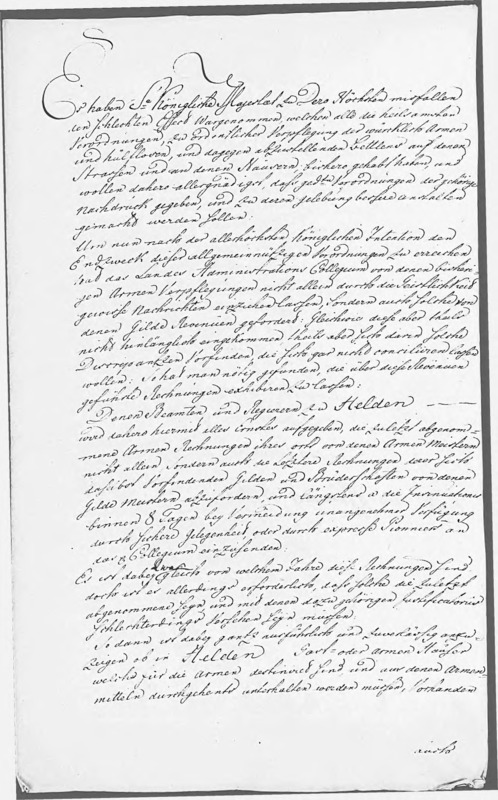 Es haben Sr Königliche Majestaet zu Dero Höchsten misfallen
den schlechten Effect wargenommen, welchen alle die heilsamsten
Verordnungen, zu ordentlicher Verpflegung der würklich Armen
und hülflosen, und dagegen abzustellenden Bettlens auf denen
Strassen und an denen Häusern bishero gehabt haben, und
wollen dahero allergnädigst, dass gedte Verordnungen der gehörige
Nachdruck gegeben, und zu deren gelebung bessere anstalten
gemacht werden sollen.
Um nun nach der allerhöchsten Königlichen Intention den
Endzweck dieser allgemeinnüzigen Verordnungen zu erreichen
hat das Landes Administrations Collegium von denen bisheri-
gen Armen Verpflegungen nicht allein durch die Geistlichkeit
gewisse Nachrichten einziehen lassen, sondern auch solche von
denen Gilde Revenuen gefordert: Gleichwie diese aber theils
nicht hinlänglich eingekommen theils aber sich darin solche
Discrepantzen vorfinden, die sich gar nicht conciliiren lassen
wollen: So hat man nötig gefunden, die über diese Revenuen
geführte Rechnungen exhibiren zu lassen:
Denen Beamten und Regierern zu Helden
wird dahero hiermit alles Ernstes aufgegeben, die zuletzt abgenom-
mene Armen Rechnungen ihres orts von denen Armen Meistern
nicht allein, sondern auch die Letztere Rechnungen der sich
daselbst vorfindenden Gilden und Brüderschaften von denen
Gilde Meistern abzufordern, und längstens a die Insinuationis
binnen 8 Tagen bey Vermeidung unangenehmer Verfügung
durch sichere Gelegenheit oder durch expresse Pionniers an
das Collegium einzusenden:
Es ist dabey zwar gleich von welchem Jahre diese Rechnungen sind
doch ist es allerdings erforderlich, dass solche die zuletzt
abgenommene seyn und mit denen dazu gehörigen Justificatoriis
schlechterdings versehen seyn müssen.
So dann ist dabey gantz ausführlich und zuverlässig anzu-
zeigen ob in Helden Gast- oder Armen Häuser
welche für die Armen destiniret sind und aus denen Armen-
mitteln durchgehends unterhalten werden müssen, vorhanden
auch